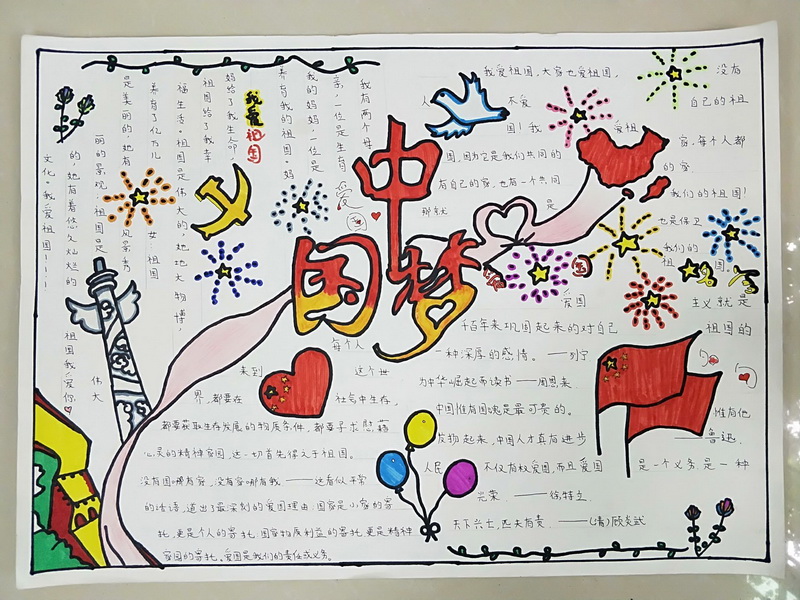 中国梦
我爱祖国
我有两个母
亲,一位是生育
我的妈妈,一位是
养育我的祖国。妈
妈给了我生命,
祖国给了我幸
福生活。祖国是伟大的,她地大物博,
养育了亿万儿女 祖国
是美丽的,她有风景秀
丽的景观 祖国是伟大
的,她有着悠久灿烂的
文化。我爱祖国!!!
祖国我爱你
爱国
我爱祖国,大家也爱祖国,没有
人不爱自己的祖
国!我爱祖
国,因为它是我们共同的家,每个人都
有自己的家,也有一个共同的家,
那就是我们的祖国!
也是保卫
我们的
祖国。
爱国主义就是
千百年来巩固起来的对自己祖国的
一种深厚的感情。——列宁
为中华崛起而读书——周恩来
中国惟有国魂是最可贵的。惟有他
发扬起来,中国人才真有进步——鲁迅
人民不仅有权爱国,而且爱国是一个义务,是一种
光荣。——徐特立
天下兴亡,匹夫有责。——(清)顾炎武
每个人
来到这个世
界,都要在社会中生存,
都要获取生存发展的物质条件,都要寻求慰藉
心灵的精神家园,这一切首先系之于祖国。
没有国哪有家,没有家哪有我——这看似平常
的话语,道出了最深刻的爱国理由:国家是小家的寄
托,更是个人的寄托,国家物质利益的寄托,更是精神
家园的寄托。爱国是我们的责任或义务。